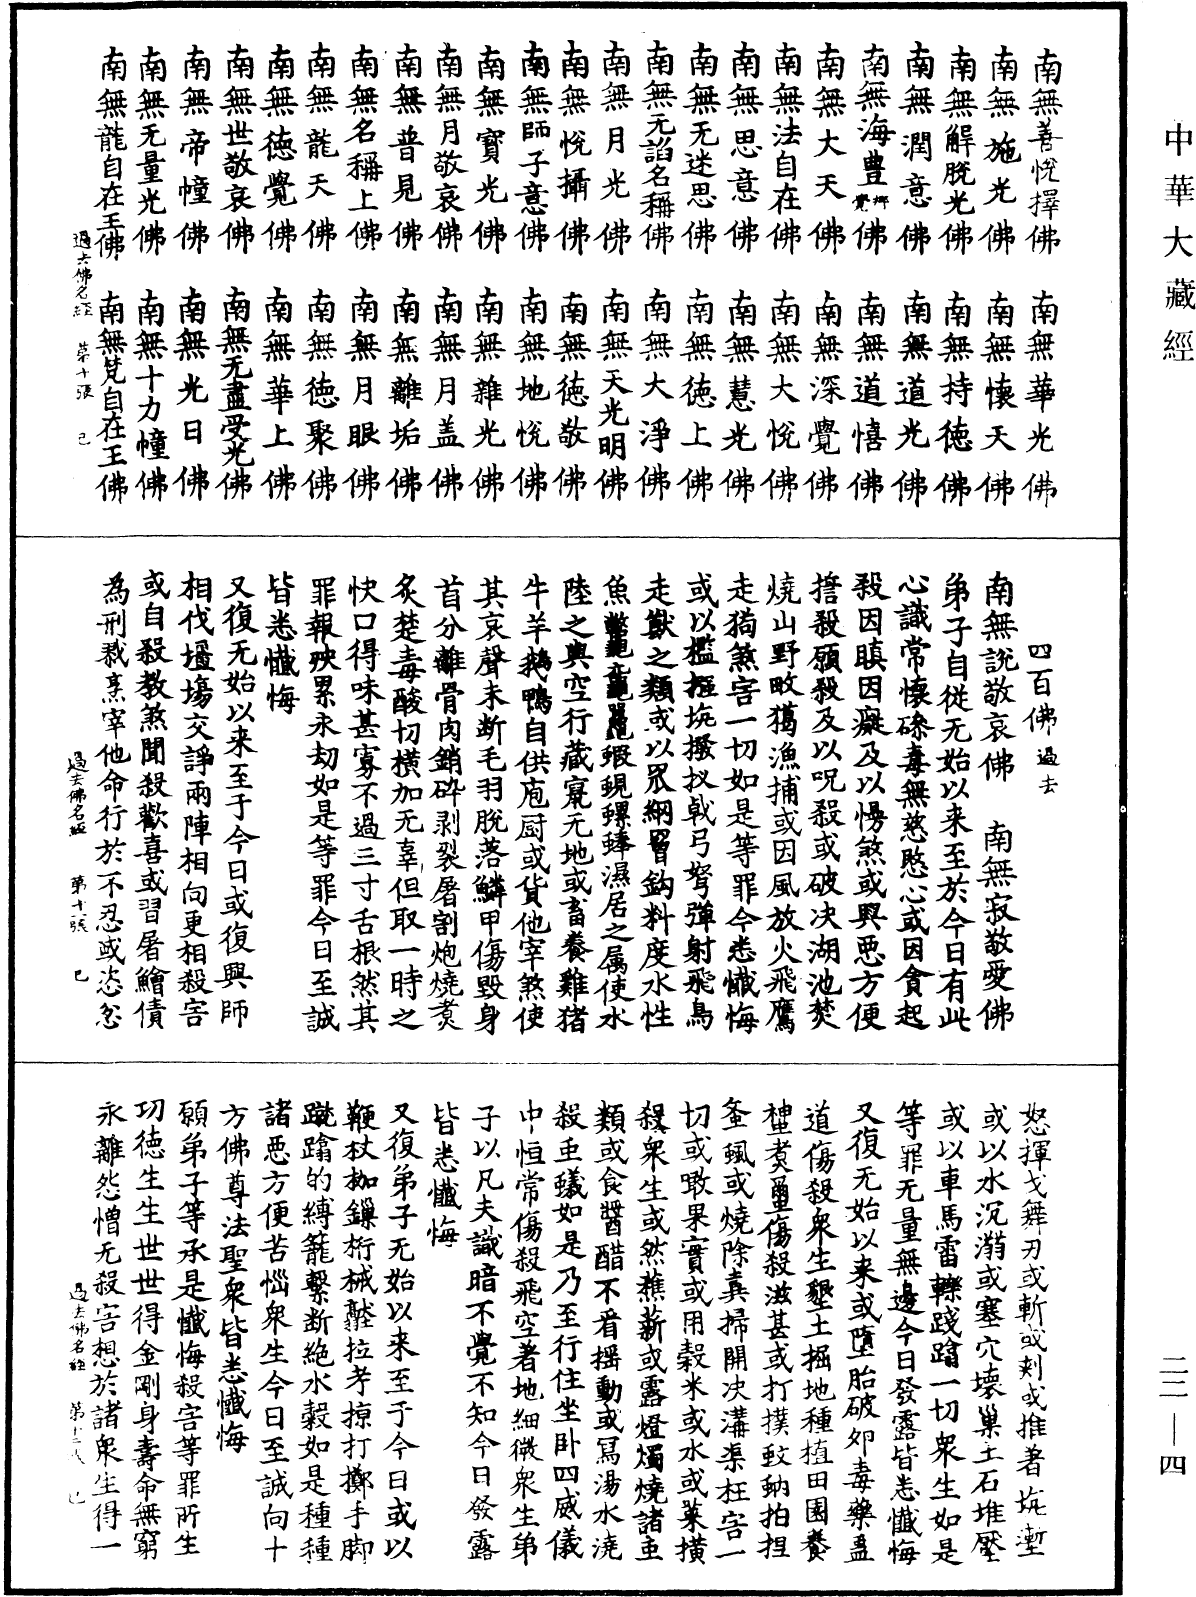 中華大藏經
南無善悅擇佛 南無華光佛
南無施光佛 南無懷天佛
南無解脫光佛 南無持德佛
南無潤意佛 南無道光佛
南無海豊佛 南無道憘佛
南無大天佛 南無深覺佛
南無法自在佛 南無大悅佛
南無思意佛 南無慧光佛
南無无迷思佛 南無德上佛
南無无諂名稱佛 南無大淨佛
南無月光佛 南無天光明佛
南無悅攝佛 南無德敬佛
南無師子意佛 南無地悅佛
南無寶光佛 南無雜光佛
南無月敬哀佛 南無月盖佛
南無普見佛 南無離垢佛
南無名稱上佛 南無月眼佛
南無龍天佛 南無德聚佛
南無德覺佛 南無華上佛
南無世敬哀佛 南無无盡受光佛
南無帝幢佛 南無光日佛
南無无量光佛 南無十力幢佛
南無龍自在王佛 南無梵自在王佛
過去佛名經 第十張 已
四百佛 過去
南無說敬哀佛 南無寂敬愛佛
弟子自從无始以来至於今日有此
心識常懷磣毒無慈愍心或因貪起
殺因瞋因癡及以慢煞或興惡方便
誓殺願殺及以呪殺或破决湖池焚
燒山野畋獦漁捕或因風放火飛鷹
走狗煞害一切如是等罪今悉懺悔
或以檻㨴坑撥扠戟弓弩彈射飛鳥
走獸之類或以罛網罾鈎料度水性
魚鼈黿鼉蝦蜆螺蜯濕居之属使水
陸之與空行藏竄无地或畜養雞猪
牛羊鵝鴨自供庖厨或貨他宰煞使
其哀聲未断毛羽脫落鱗甲傷毀身
首分離骨肉銷碎剥裂屠割炮燒煑
炙楚毒酸切横加无辜但取一時之
快口得味甚寡不過三寸舌根然其
罪報殃累永劫如是等罪今日至誠
皆悉懺悔
又復无始以来至于今日或復興師
相伐壃塲交諍兩陣相向更相殺害
或自殺教煞聞殺歡喜或習屠鱠債
為刑戮烹宰他命行於不忍或恣忿
過去佛名經 第十一張 已
怒揮戈舞刃或斬或剌或推著坑塹
或以水沉溺或塞穴壞巢土石堆壓
或以車馬雷轢踐蹹一切衆生如是
等罪无量無邊今日發露皆悉懺悔
又復无始以来或墮胎破夘毒藥蠱
道傷殺衆生墾土掘地種植田園養
蠶煑蠒傷殺滋甚或打撲蚊蚋拍揑
蚤虱或燒除糞掃開决溝渠枉害一
切或噉果實或用穀米或水或菜横
殺衆生或然蕉薪或露燈燭燒諸虫
類或食醬醋不看揺動或冩湯水澆
殺虫蟻如是乃至行住坐卧四威儀
中恒常傷殺飛空著地細微衆生弟
子以凡夫識暗不覺不知今日發露
皆悉懺悔
又復弟子无始以来至于今日或以
鞭杖枷鏁桁械壓拉考掠打擲手脚
蹴蹹的縛籠繫断絶水穀如是種種
諸惡方便苦惱衆生今日至誠向十
方佛尊法聖衆皆悉懺悔
願弟子等承是懺悔殺害等罪所生
功德生生世世得金剛身壽命無窮
永離怨憎无殺害想於諸衆生得一
過去佛名經 第十二張 已
二二—四